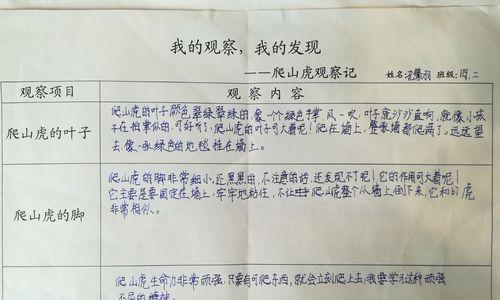 我的观察，我的发现
——爬山虎观察记
姓名: 班级:四.二
观察项目 观察内容
爬山虎的叶子
爬山虎的叶子颜色翠绿翠绿的，像一个个绿色手掌，风一吹，叶子就沙沙直响，就像小孩
子在拍掌似的，可好听了，爬山虎的叶子可大着呢！爬在墙上，整张墙都爬满了。远远望
去，像一张绿色的地毯挂在墙上。
爬山虎的脚
爬山虎的脚非常细小，还黑黑的，不注意的话，还发现不了呢！它的作用可大着呢！
它主要是要固定在墙上，牢牢地粘住，不让爬山虎整个从墙上倒下来，它和bì虎
非常相似。
爬山虎生命力非常顽强，只要有可爬东西，就会立刻爬上去，我要学习这种顽强
不屈的精神。